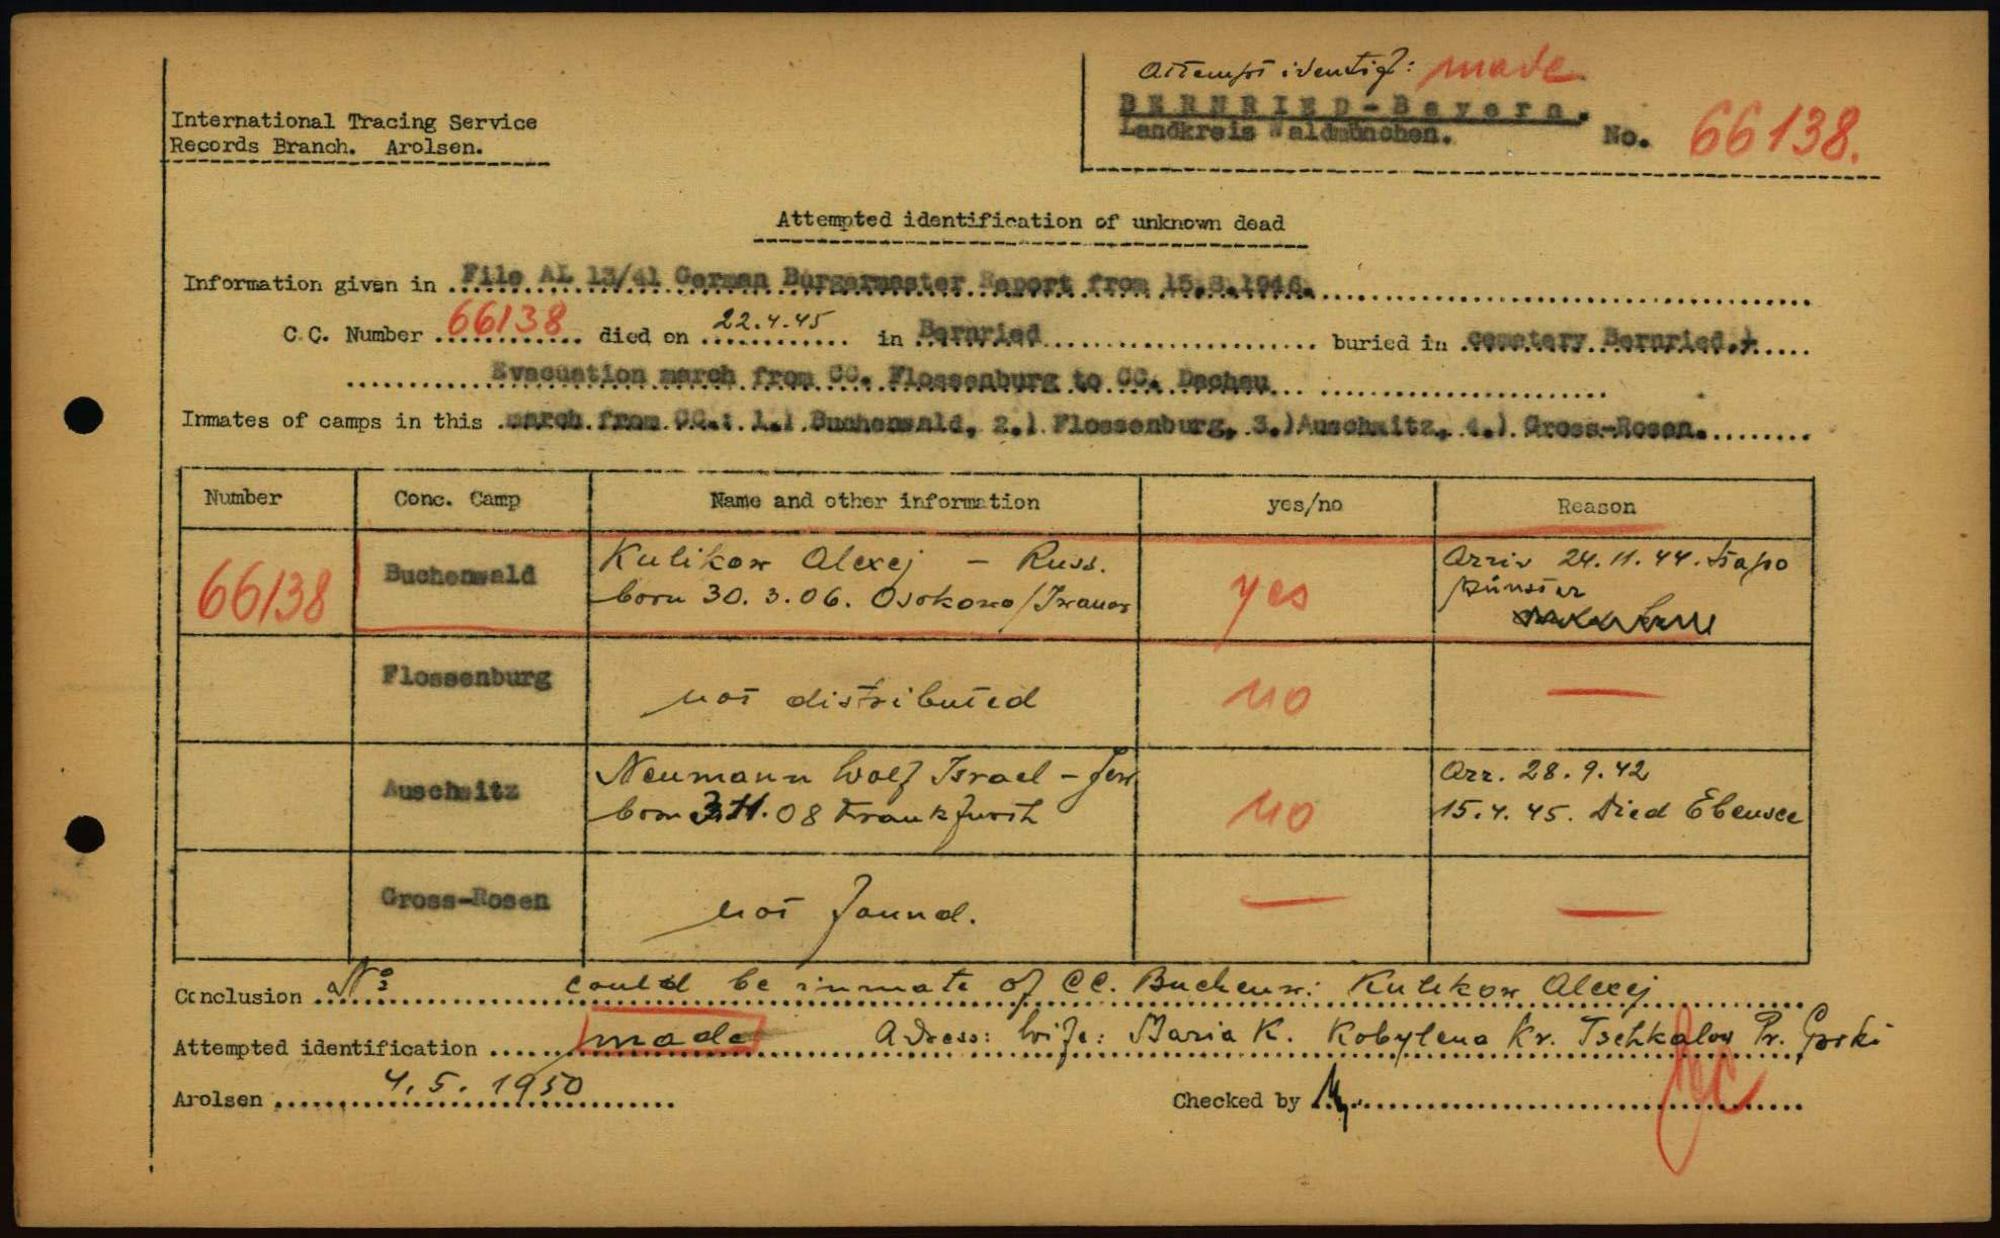 Attempt identif: made
International Tracing Service
Records Branch. Arolsen.
BERNRIED-Bayern.
Landkreis Waldmünchen. No. 66138.
Attempted identification of unknown dead
Information given in File AL 13/41 German Burgermaster Report from 15.8.1946.
C.C. Number 66138 died on 22.4.45 in Bernried buried in cemetery Bernried.
Evacuation march from CC. Flossenburg to CC. Dachau
Inmates of camps in this march from CC.: 1.) Buchenwald, 2.) Flossenburg, 3.)Auschwitz, 4.) Gross-Rosen.
Number Conc. Camp Name and other information yes/no Reason
66138 Buchenwald Kulikow Alexej - Russ. yes Arriv 24.11.44. Stapo
born 30.3.06. Osokowo/Iwanow Münster
Flossenburg not distributed no —
Auschwitz Neumann Wolf Israel - Jew no Arr. 28.9.42
born 08 Frankfurth 15.4.45. Died Ebensee
Gross-Rosen not found. — —
Conclusion No: could be inmate of CC. Buchenw: Kulikow Alexej
Attempted identification made Adress: Wife: Maria K. Kobylena Kr. Tschkalow Pr. Gorki
Arolsen 4.5.1950 Checked by